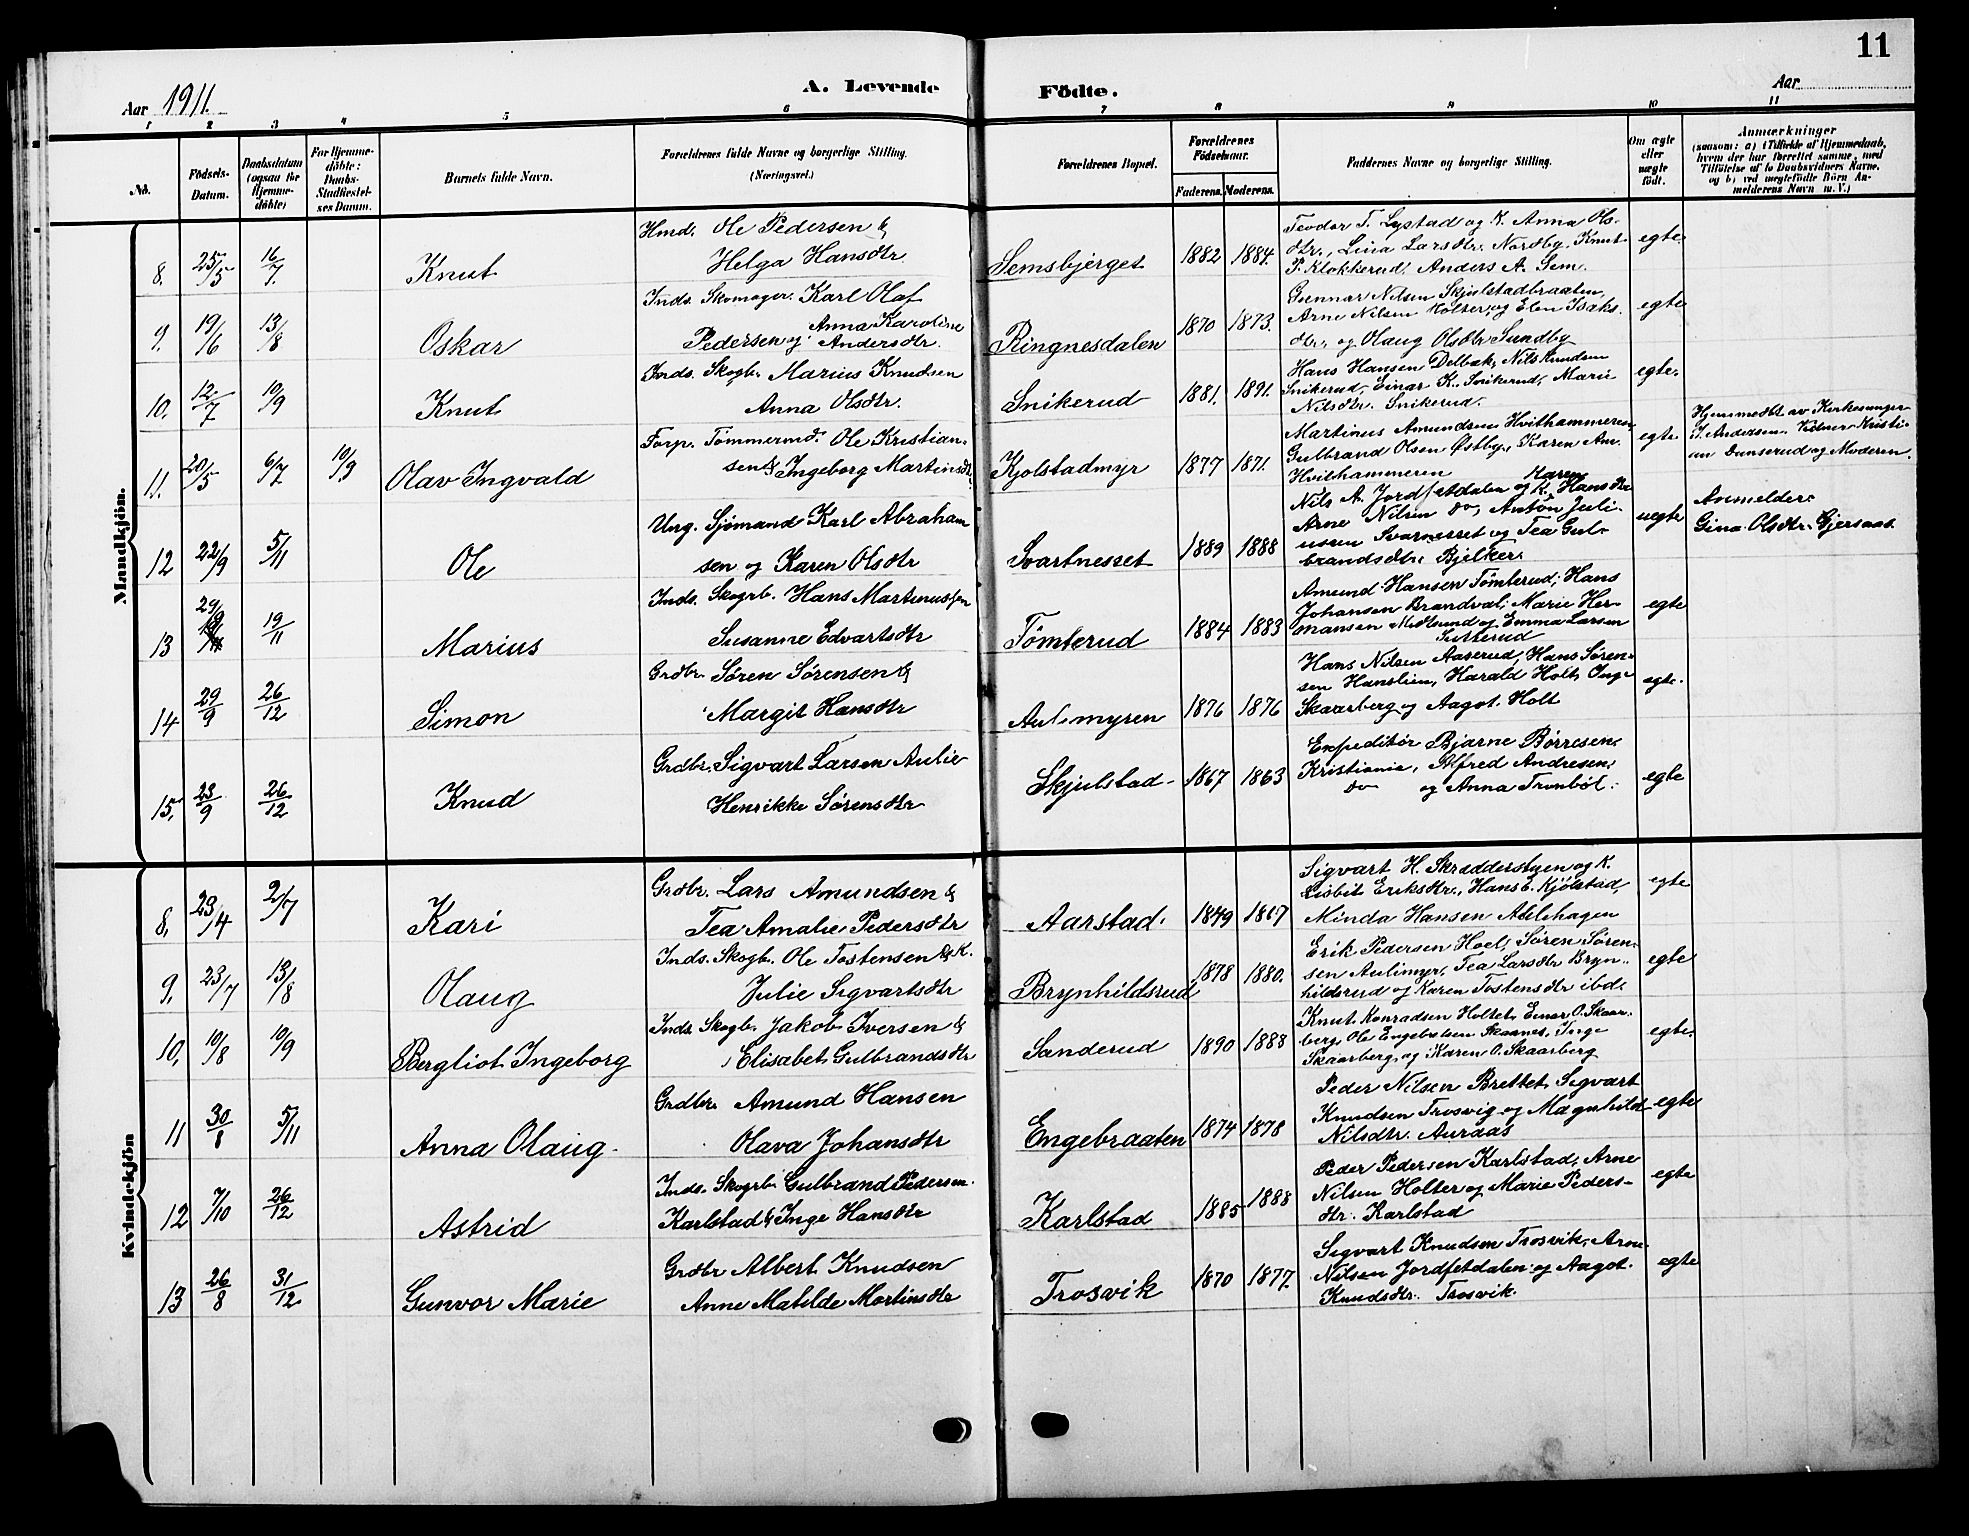 11
Aar 1911.
A. Levende Födte.
Aar
1 2 3 4 5 6 7 8 9 10 11
No.
Födsels-Datum.
Daabsdatum (ogsaa for Hjemmedöbte)
For Hjemmedöbte: Daabs-Stadfæstelses Datum.
Barnets fulde Navn.
Forældrenes fulde Navne og borgerlige Stilling. (Næringsvei.)
Forældrenes Bopæl.
Forældrenes Födselsaar.
Faderens. Moderens.
Faddernes Navne og borgerlige Stilling.
Om ægte eller uægte födt.
Anmærkninger
(saasom: a) i Tilfælde af Hjemmedaab, hvem der har forrettet samme, med Tilföielse af to Daabsvidners Navne, og b) ved uægtefödte Börn Anmelderens Navn m. V.)
Mandkjön.
8. 25/5 16/7. Knut
Hmd. Ole Pedersen &
Helga Hansdtr
Semsbjerget 1882 1884.
Teodor T. Lystad og K. Anna Ols-
dtr., Lina Larsdtr. Nordby, Knut
P. Klokkerud, Anders A. Sem.
egte
9. 19/6 13/8 Oskar
Inds. Skomager. Karl Olaf
Pedersen og Anna Karoline
Andersdtr.
Ringnesdalen 1870 1873.
Gunnar Nilsen Skjulstadbraaten,
Arne Nilsen Holter, og Elen Isaks-
dtr. og Olaug Olsdtr Sundby
egte
10. 12/7 10/9 Knut
Inds. Skogb. Marius Knudsen
Anna Olsdtr.
Snikerud 1881. 1891.
Hans Hansen Delbæk, Nils Knudsen
Snikerud, Einar K. Snikerud, Marie
Nilsdtr. Snikerud.
egte.
11. 20/5 6/7 10/9 Olav Ingvald
Forp. Tømmermd. Ole Kristian-
sen & Ingeborg Martinsdtr.
Kjølstadmyr 1877 1871.
Martinus Amundsen Hvithammeren
Gulbrand Olsen Østby, Karen Am.
Hvithammeren
egte
Hjemmedbt. av Kirkesanger
J. Andersen. Vidner Kristi-
an Dunserud og Moderen.
12 22/9 5/11 Ole
Ung. Sjømand Karl Abraham
sen og Karen Olsdtr
Svartnesset 1889 1888
Nils A. Jordfetdalen og K. Karen Hansdtr
Arne Nilsen do, Anton Juli-
ussen Svarnesset og Tea Gul-
brandsdtr. Bjelker.
uegte
Anmelder
Gina Olsdtr. Gjersaas.
13 29/9 19/11 Marius
Inds. Skogrb. Hans Martinussen
Susanne Edvartsdtr
Tømterud 1884 1883
Amund Hansen Tømterud, Hans
Johansen Brandval, Marie Her-
mansen Midlerud og Emma Larsen
egte
14 29/9 26/12 Simon
Grdbr. Søren Sørensen &
Margit Hansdtr
Aulimyren 1876 1876
Hans Nilsen Aaserud, Hans Søren-
sen Hanslien, Harald Holt, Inge
Skaarberg og Aagot Holt
egte.
15. 23/9 26/12 Knud
Grdbr. Sigvart Larsen Aulie
Henrikke Sørensdtr
Skjulstad 1867 1863
Expeditør Bjarne Børresen,
Kristiania, Alfred Andresen,
do og Anna Tronbøl.
egte
Kvindekjön
8. 23/4 2/7 Kari
Grdbr. Lars Amundsen &
Tea Amalie Pedersdtr
Aarstad. 1849 1867
Sigvart H. Skredderstuen og K.
Lisbet Eriksdtr., Hans E. Kjølstad,
Minda Hansen Ablehagen
egte
9. 23/7 13/8 Olaug
Inds. Skogb. Ole Tostensen & K.
Julie Sigvartsdtr
Brynhildsrud 1878 1880.
Erik Pedersen Hoel, Søren Søren-
sen Aulimyr, Tea Larsdtr Bryn-
hildsrud og Karen Tostensdtr ibd.
egte
10. 10/8 10/9 Bergliot Ingeborg
Inds. Skogb. Jakob Iversen &
Elisabet Gulbrandsdtr
Sanderud 1890 1888
Knut Konradsen Holtet, Einar O. Skaar-
berg, Ole Engebretsen Skaanes, Inge
Skaarberg, og Karen O. Skaarberg
egte.
11 30/8 5/11 Anna Olaug
Grdbr. Amund Hansen
Olava Johansdtr
Engebraaten 1874 1878
Peder Nilsen Brettet, Sigvart
Knudsen Trosvig og Magnhild
Nilsdtr. Auraas
egte
12 7/10 26/12 Astrid
Inds. Skogrb. Gulbrand Pedersen
Karlstad & Inge Hansdtr
Karlstad 1885 1888
Peder Pedersen Karlstad, Arne
Nilsen Holter og Marie Peders-
dtr. Karlstad
egte
13 26/8 31/12 Gunvor Marie
Grdbr Albert Knudsen
Anne Matilde Martinsdtr
Trosvik 1870 1877.
Sigvart Knudsen Trosvik, Arne
Nilsen Jordfetdalen og Aagot
Knudsdtr. Trosvik.
egte